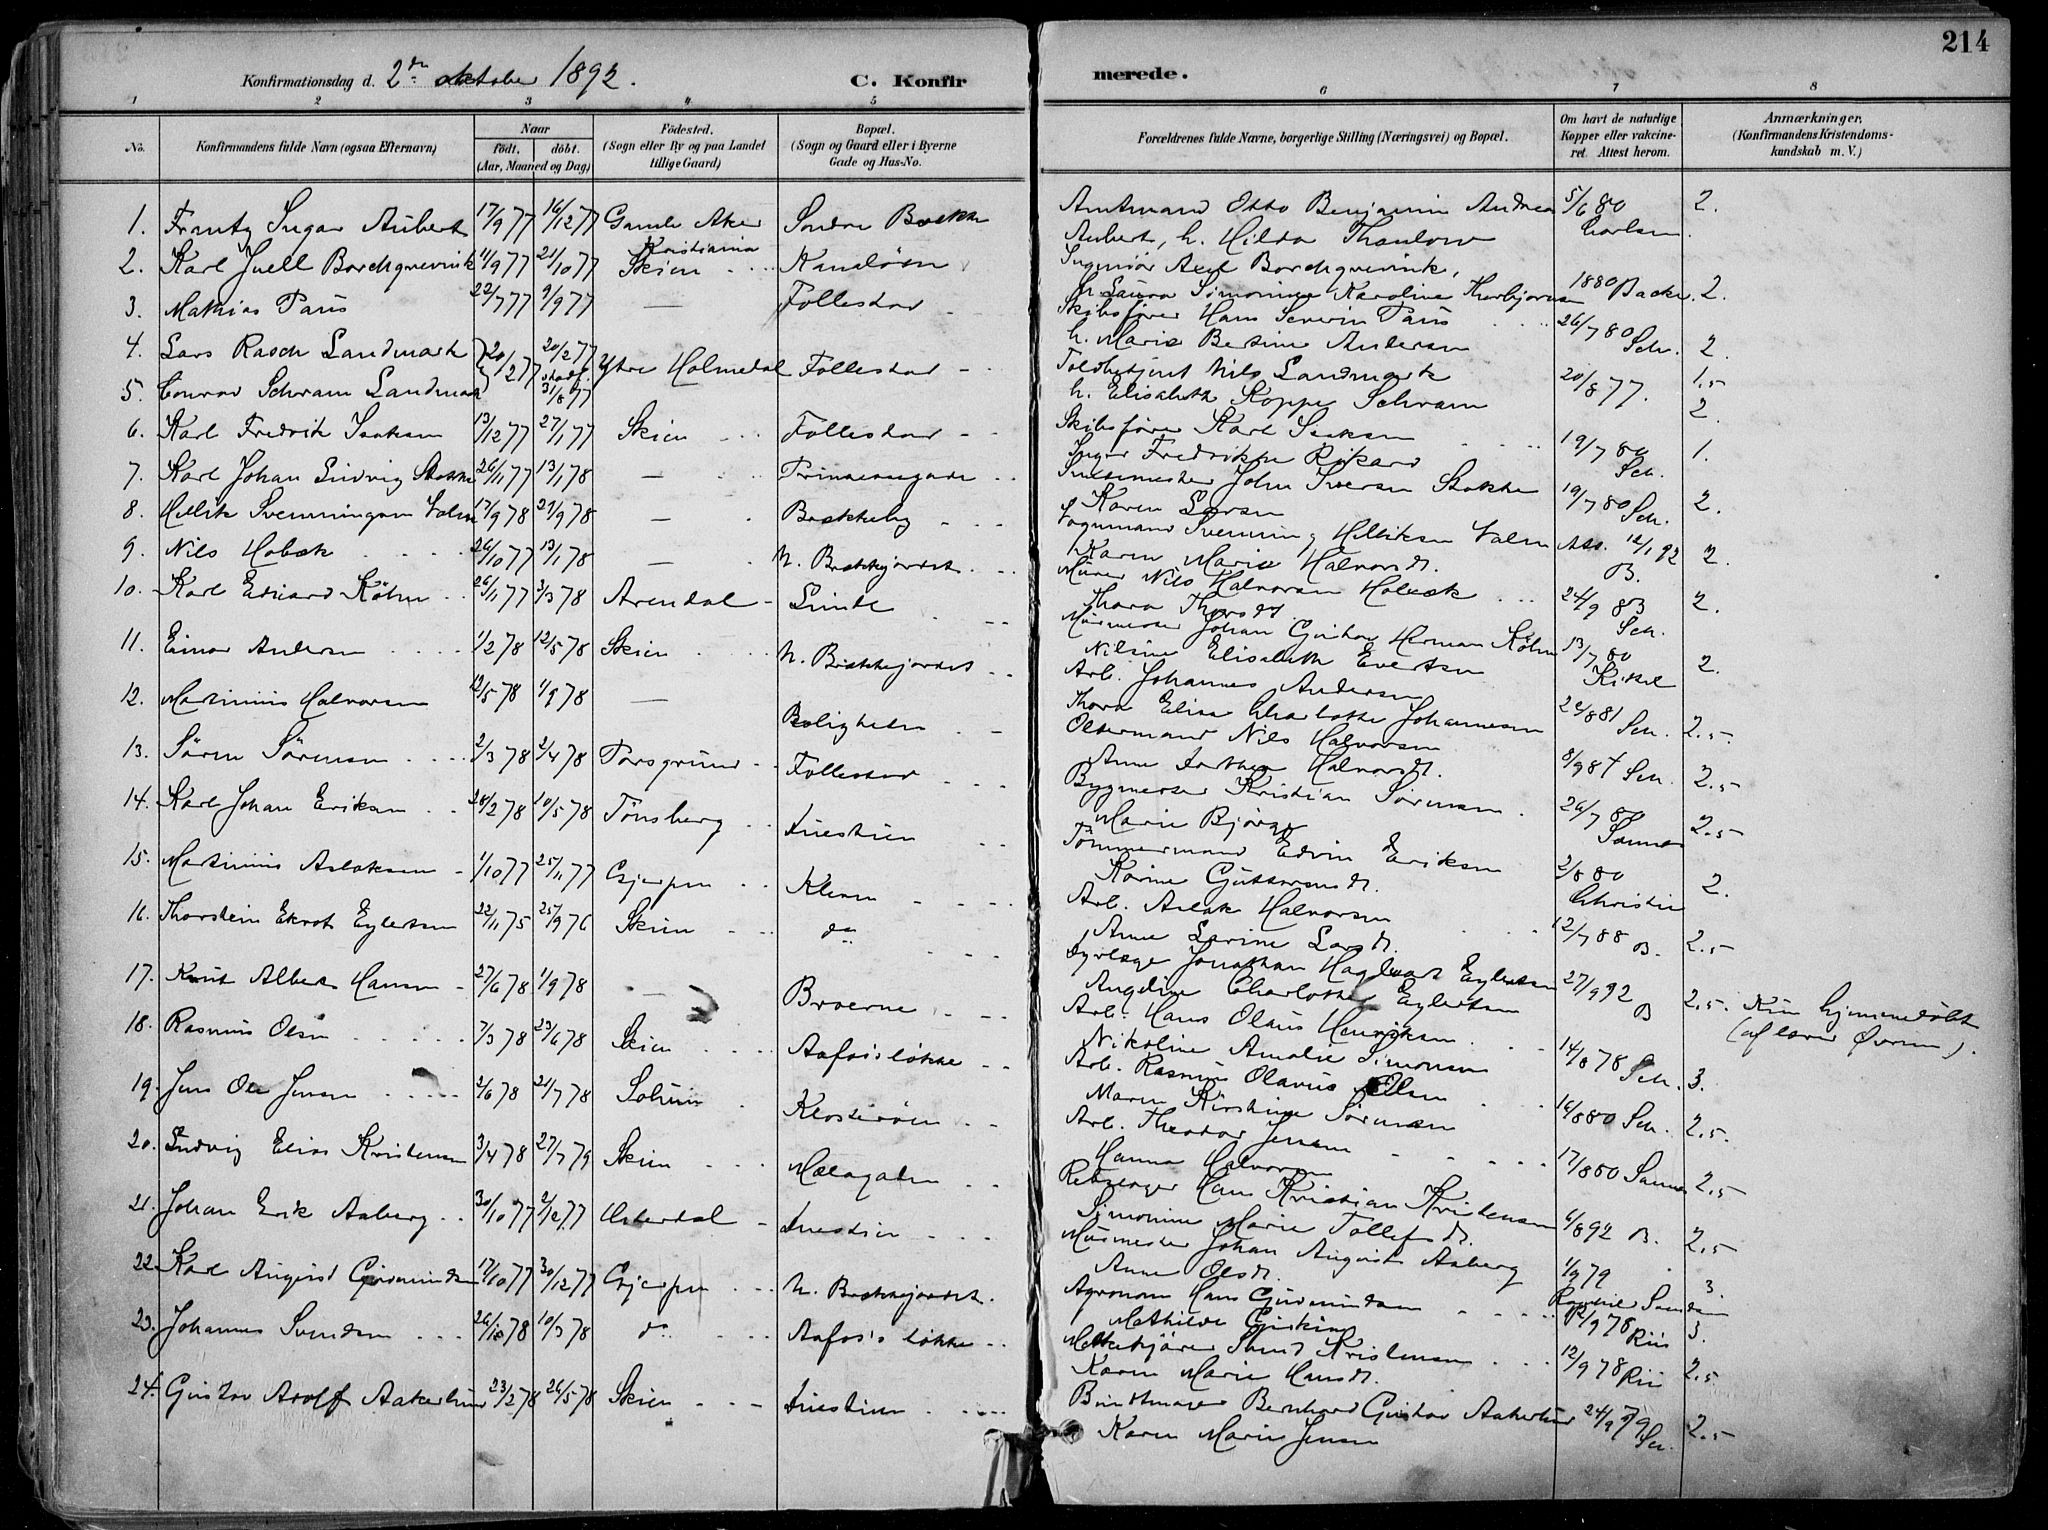 214
Konfirmationsdag d. 2den oktober 1892.
C. Konfirmerede.
1 2 3 4 5 6 7 8
No.
Konfirmandens fulde Navn (ogsaa Efternavn)
Naar
født. døbt.
(Aar, Maaned og Dag)
Fødested.
(Sogn eller By og paa Landet
tillige Gaard)
Bopæl.
(Sogn og Gaard eller i Byerne
Gade og Hus-No.
Forældrenes fulde Navne, borgerlige Stilling (Næringsvei) og Bopæl.
Om havt de naturlige
Kopper eller vakcine-
ret. Attest herom.
Anmærkninger.
(Konfirmandens Kristendoms-
kundskab m. V.)
1. Frantz Ingar Aubert 17/9 77 16/12 77 Gamle Aker Kristiania Søndre Brekke Amtmand Otto Benjamin Andreas 5/6 80 2.
Aubert, h. Hilda Thaulow Carlsen.
2. Karl Juell Borchgrevink 11/9 77 21/10 77 Skien Ingeniør Axel Borchgrevink,
h. Laura Simonine Karoline Thorbjørnsen 1880 Backe. 2.
3. Mathias Paus 22/7 77 9/9 77 — Follestad Skibsfører Hans Severin Paus 26/7 80
h. Marie Bertine Andersen Sch. 2.
4. Lars Rasch Landmark 20/2 77 20/2 77 Ytre Holmedal Follestad Toldbetjent Nils Landmark 20/8 77. 1.5
5. Conrad Schram Landmark 31/8 77 h. Elisabeth Koppe Schram 2.
6. Karl Fredrik Isaksen 13/12 77 27/1 77 Skien Follestad Skibsfører Karl Isaksen 19/7 80 1.
Inger Fredrikke Rikard Sch.
7. Karl Johan Ludvig Stokke 26/11 77 13/1 78 — Prinsessegade John Iversen Stokke 19/7 80 2.
Karen Larsen Sch.
8. Hellik Svenningsen Valm 17/9 78 29/9 78 — Brekkeby Vognmand Svenning Helliksen Valm Att. 12/1 92 2.
Karen Marie Halvorsdt. B.
9. Nils Holbæk 26/10 77 13/1 78 — N. Brekkejordet Murer Nils Halvorsen Holbæk 24/9 83 2.
Thora Thorsdt Sch.
10. Karl Eduard Köhn 26/11 77 3/3 78 Arendal Johan Gustav Herman Köhn 13/7 80 2.
Nilsine Elisabeth Evertsen
11. Einar Andersen 1/2 78 12/5 78 Skien N. Brekkejordet Arb. Johannes Andersen
Thora Elise Charlotte Johannesen 24/8 81 Sch. 2.5.
12. Martinius Halvorsen 12/5 78 1/9 78 — Boligheden Oltermand Nils Halvorsen
Anne Dorthea Halvorsdt. 8/9 87 Sch. 2.5
13. Sören Sörensen 2/3 78 2/4 78 Porsgrund Follestad Bygmester Kristian Sörensen 26/7 80
Marie Bjørge Sannes 2.5
14. Karl Johan Eriksen 28/2 78 10/5 78 Tönsberg Luestien Tömmermand Edvin Eriksen 2/8 80
Karine Guttormsdt. Christie 2.
15. Martinius Aslaksen 1/10 77 25/11 77 Gjerpen Kleven Arb. Aslak Halvorsen 12/7 88 B. 2.5
Anne Serine Larsdt.
16. Thorstein Ekrot Eylertsen 22/11 75 25/9 76 Skien do Dyrlæge Jonathan Hagbart Eylertsen 27/9 92
Angeline Charlotte Eylertsen B 2.5. Kun hjemmedøbt
17. Knut Albert Hansen 27/6 78 1/9 78 — Broerne Arb. Hans Olaus Henriksen (af lærer Øvrum).
Nikoline Amalie Simonsen 14/8 78 Sch. 3.
18. Rasmus Olsen 7/3 78 23/6 78 Skien Aafosløkke Arb. Rasmus Olavus Olsen
Maren Kirstine Sörensen 16/8 80 Sch. 2.5.
19. Jens Ole Jensen 2/6 78 21/7 78 Solum Klosterøen Arb. Theodor Jensen
Hanna Halvorsen 17/8 80 Sannes 2.5
20. Ludvig Elias Kristensen 3/4 78 27/7 79 Skien Mælagaden Rebslager Hans Kristian Kristensen
Simonine Marie Tollefsdt. 6/8 92 B. 2.5
21. Johan Erik Aaberg 30/10 77 2/12 77 Østerdal Luestien Murmester Johan August Aaberg
Anne Olsdt. 1/9 79 3.
22. Karl August Gudmundsen 17/10 77 30/12 77 Gjerpen N. Brekkejordet. Agronom Hans Gudmundsen
Mathilde 12/9 78 Riis 3.
23. Johannes Svendsen 26/10 78 10/3 78 do Aafos's løkke Svend Kristensen 12/9 78 Riis 2.5
Karen Marie Hansdt.
24. Gustav Adolf Aakerlund 23/2 78 26/5 78 Skien Luestien Buntmager Bernhard Gustav Aakerlund 24/9 79
Karen Marie Jensen Sch. 2.5